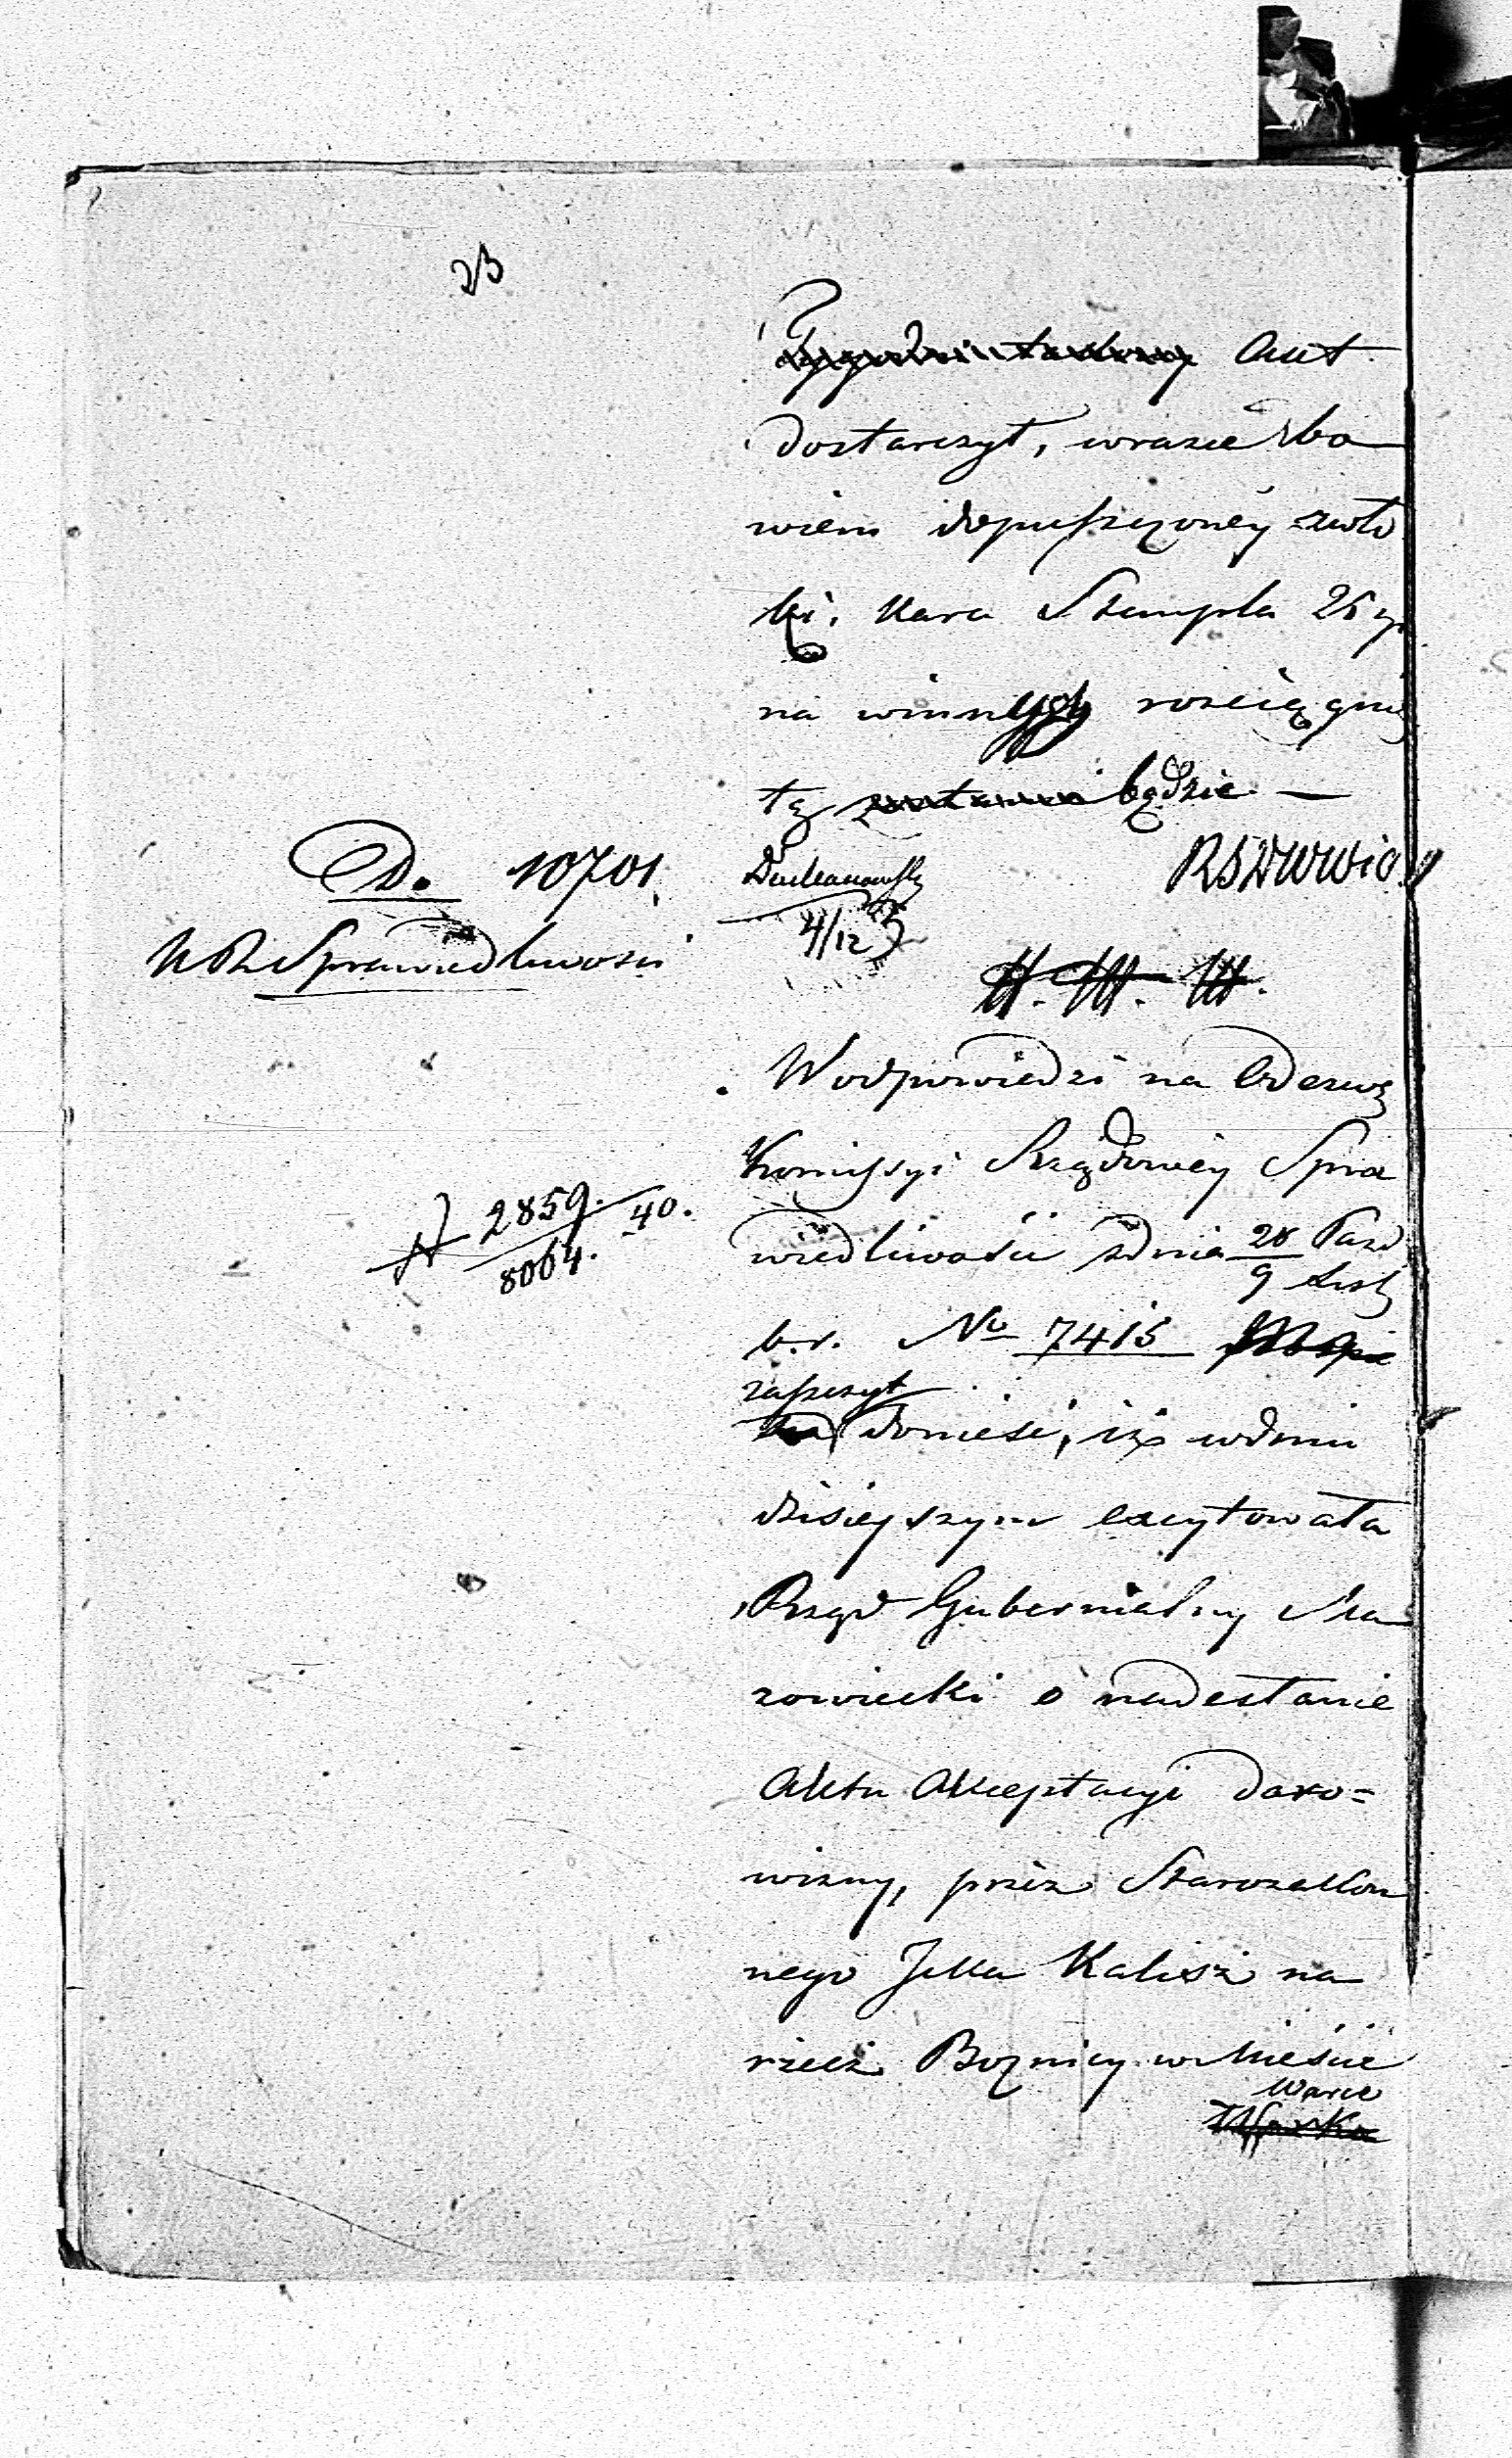 23
Akt
dostarczył, w razie bo
wiem dopuszczoney zwło
ki, kara Stempla
na winnych rościągnię
tą będzie —
D. 10701.
4/12
K R Sprawiedliwości
W odpowiedzi na Odezwę
Kommissyi Rządowey Spra
2859. / 8064. 40.
wiedliwości z dnia 28 Paźd / 9 List
b. r. No 7415
zaszczyt
donieść, iż w dniu
dzisieyszym excytowała
Rząd Gubernialny Ma
zowiecki o nadesłanie
Aktu Akceptacyi daro=
wizny, przez Starozakon
nego Kalisz na
rzecz Bożnicy w Mieście
Warce